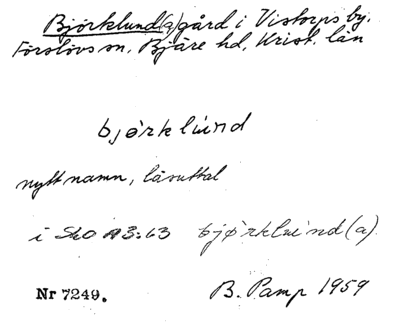 Björklund(a) gård i Vistorps by,
Förslövs sn, Bjäre hd, Krist. län
bjørklúnd
nytt namn, läsuttal
i SkO A3:63 bjø̀rklúnd(a)
Nr 7249. B. Pamp 1959